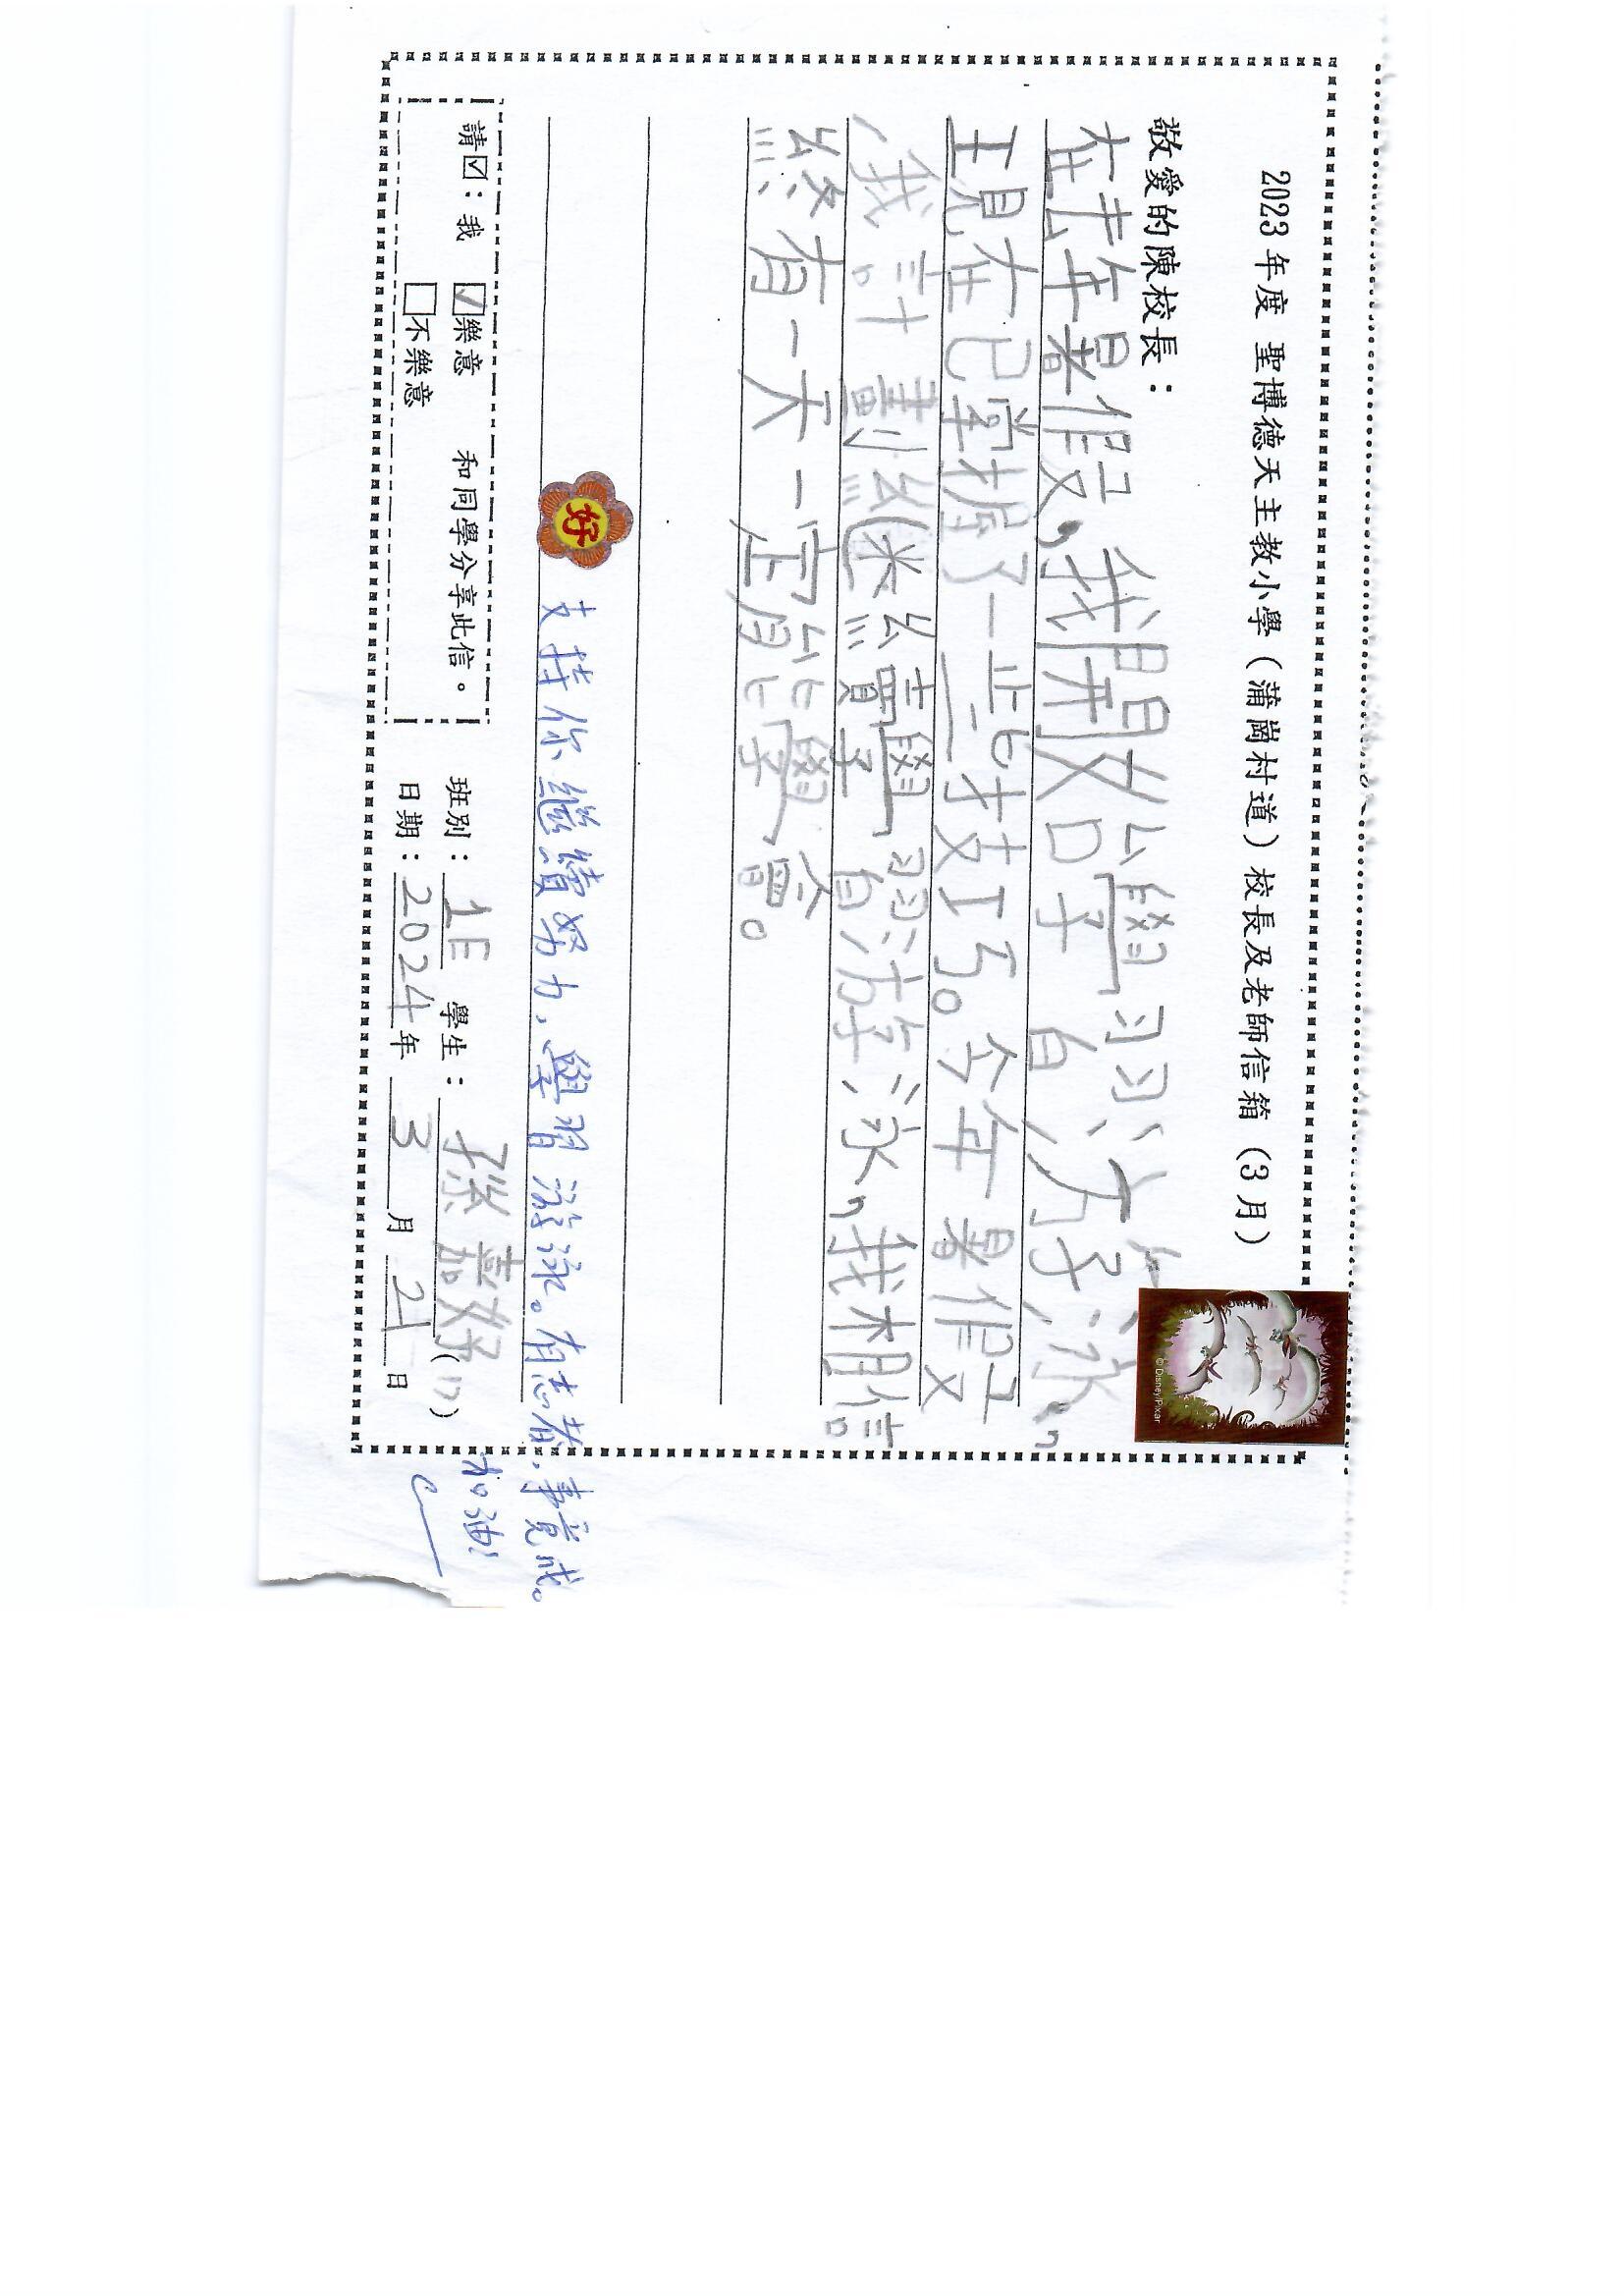 2023 年度 聖博德天主教小學（蒲崗村道）校長及老師信箱（3月）
敬愛的陳校長：
在去年暑假，我開始學習游泳，
現在已掌握了一些技巧。今年暑假
，我計劃繼續學習游泳，我相信
終有一天一定能學會。
好
支持你繼續努力，學習游泳。有志者，事竟成。
加油！
請☑：我 ☑樂意 和同學分享此信。
□不樂意
班別：1E 學生：孫嘉妤(17)
日期：2024年3月21日
©Disney/Pixar